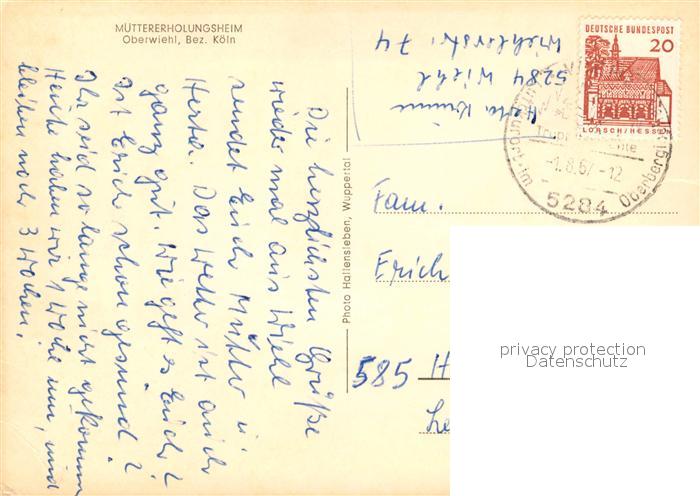 MÜTTERERHOLUNGSHEIM
Oberwiehl, Bez. Köln
Die herzlichsten Grüße
wieder mal aus Wiehl
sendet Euch Mutter u.
Herta. Das Wetter ist auch
ganz gut. Wie geht es Euch?
Ist Erich schon gesund?
Ihr seid so lange nicht gekommen
Heute haben wir 1 Woche um, und
bleiben noch 3 Wochen.
Photo Hallensleben, Wuppertal
Herta
5284 Wiehl
74
DEUTSCHE BUNDESPOST
20
LORSCH/HESSEN
-1.8.67-12
5284
Fam.
Erich
585 H
privacy protection
Datenschutz